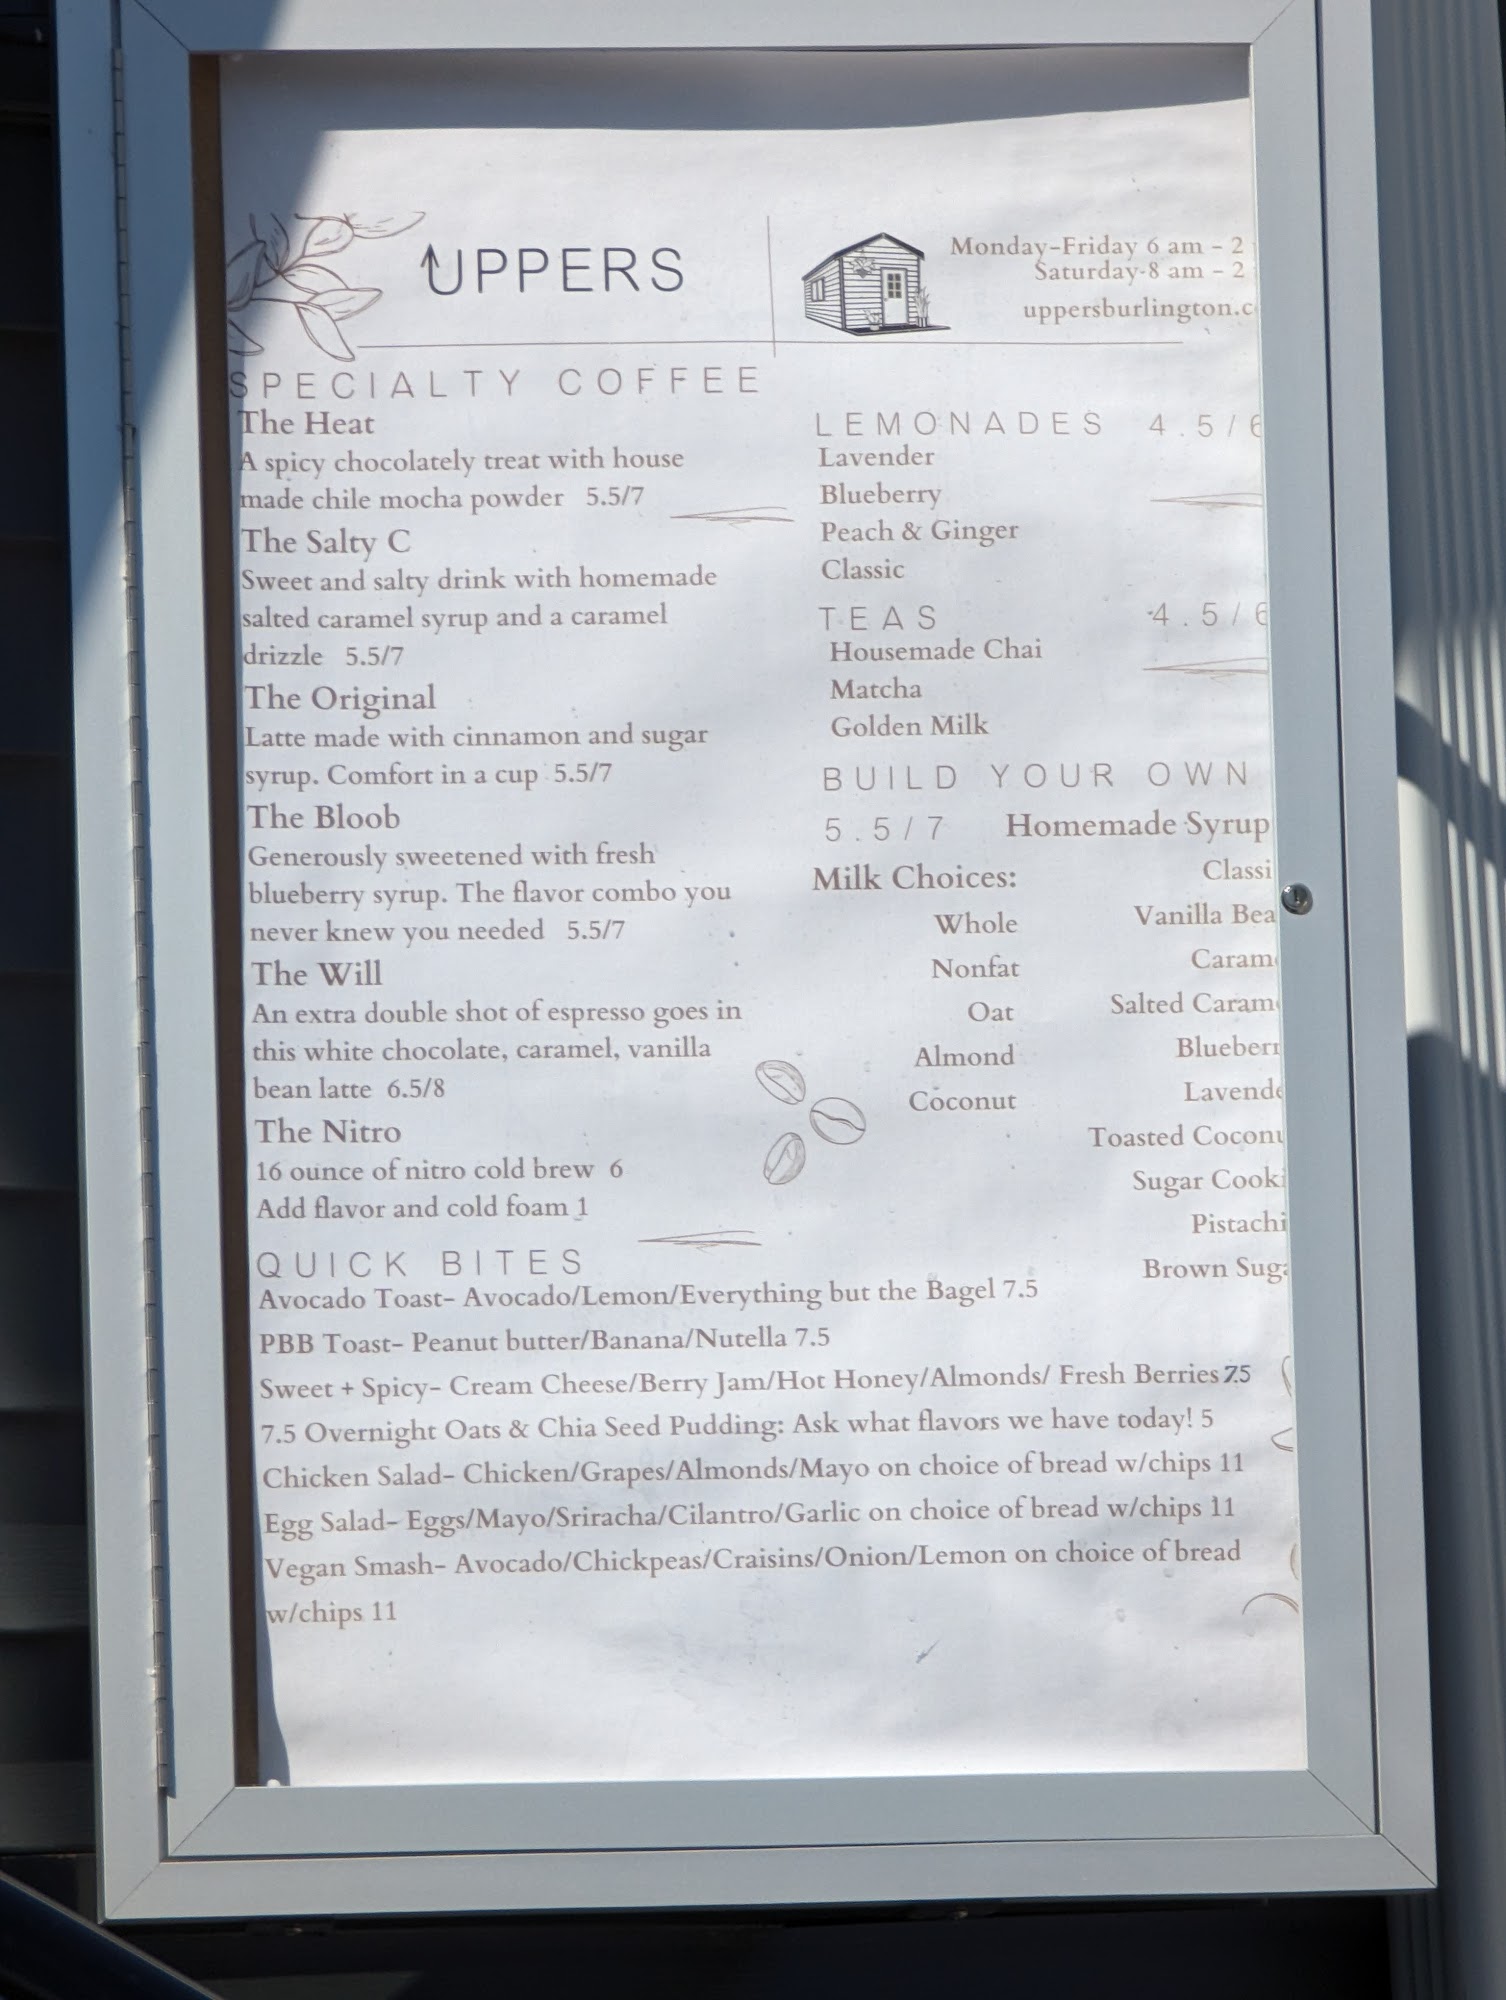 UPPERS
Monday-Friday 6 am - 2
Saturday-8 am - 2
uppersburlington.c
SPECIALTY COFFEE
The Heat
A spicy chocolately treat with house
made chile mocha powder 5.5/7
The Salty C
Sweet and salty drink with homemade
salted caramel syrup and a caramel
drizzle 5.5/7
The Original
Latte made with cinnamon and sugar
syrup. Comfort in a cup 5.5/7
The Bloob
Generously sweetened with fresh
blueberry syrup. The flavor combo you
never knew you needed 5.5/7
The Will
An extra double shot of espresso goes in
this white chocolate, caramel, vanilla
bean latte 6.5/8
The Nitro
16 ounce of nitro cold brew 6
Add flavor and cold foam 1
LEMONADES 4.5/6
Lavender
Blueberry
Peach & Ginger
Classic
TEAS 4.5/6
Housemade Chai
Matcha
Golden Milk
BUILD YOUR OWN
5.5/7 Homemade Syrup
Milk Choices:
Whole
Nonfat
Oat
Almond
Coconut
Classi
Vanilla Bea
Caram
Salted Caram
Blueberr
Lavend
Toasted Cocon
Sugar Cooki
Pistachi
Brown Suga
QUICK BITES
Avocado Toast- Avocado/Lemon/Everything but the Bagel 7.5
PBB Toast- Peanut butter/Banana/Nutella 7.5
Sweet + Spicy- Cream Cheese/Berry Jam/Hot Honey/Almonds/ Fresh Berries 7.5
7.5 Overnight Oats & Chia Seed Pudding: Ask what flavors we have today! 5
Chicken Salad- Chicken/Grapes/Almonds/Mayo on choice of bread w/chips 11
Egg Salad- Eggs/Mayo/Sriracha/Cilantro/Garlic on choice of bread w/chips 11
Vegan Smash- Avocado/Chickpeas/Craisins/Onion/Lemon on choice of bread
w/chips 11